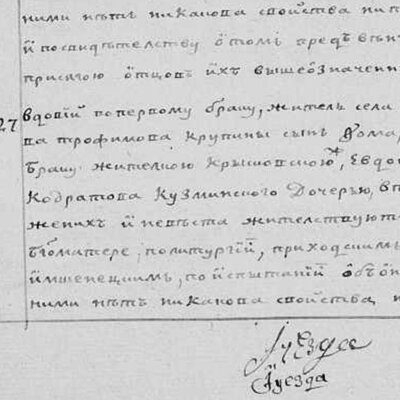 ними нѣтъ никакова свойства ни п
й посвидѣтелству ѻтомъ предъ вѣн
присягою ѻтцовъ ихъ вышеѻзначенн
27 вдовій поперв​ому браку, житель села
ва трофимова крупины сынъ Ѳома,
браку жителкою Крыловскою, Евдо
Кодратова Кузминского дочерью, в
женихъ и невѣста жителствуют
політургїй, приходскимъ
поиспытанїй ѻбъѻ
ними нѣтъ никакова свойства н